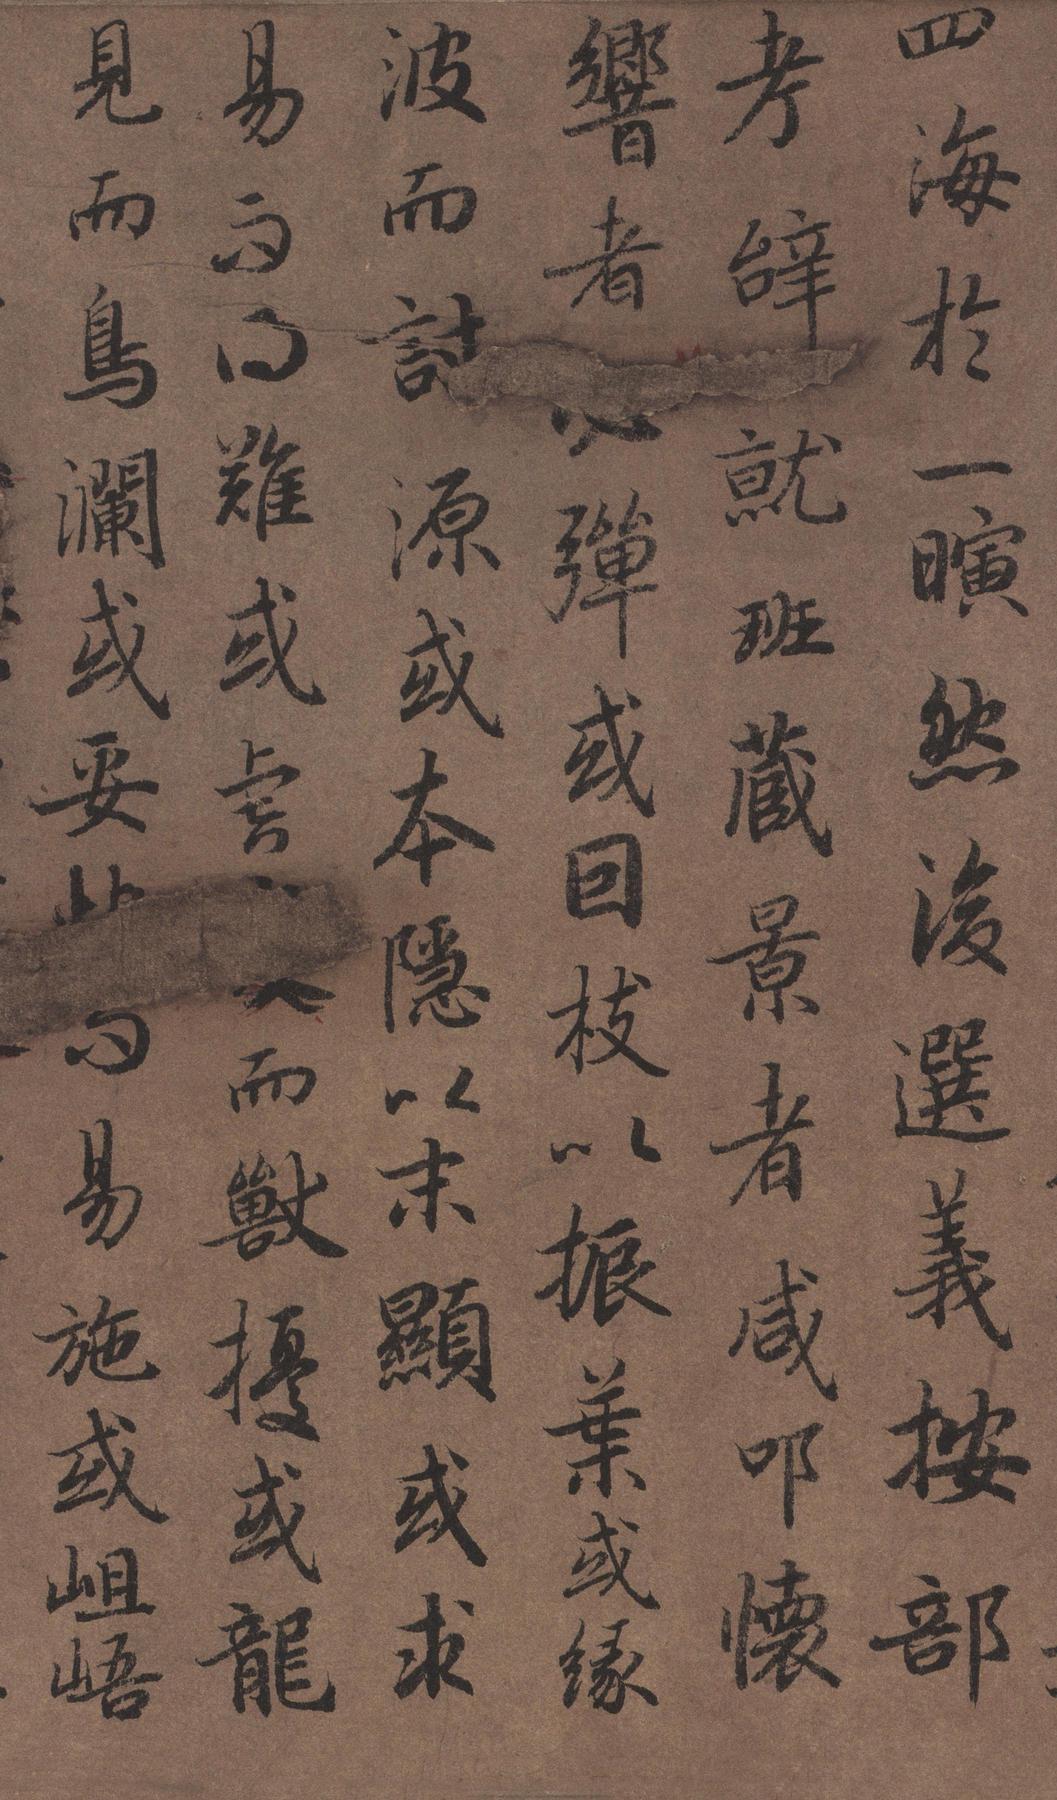 四海於一瞚然後選義按部
考辤就班藏景者咸叩懷
響者必彈或因枝以振葉或緣
波而討源或本隱以末顯或求
易而得難或虎變而獸擾或龍
見而鳥瀾或妥帖而易施或岨峿